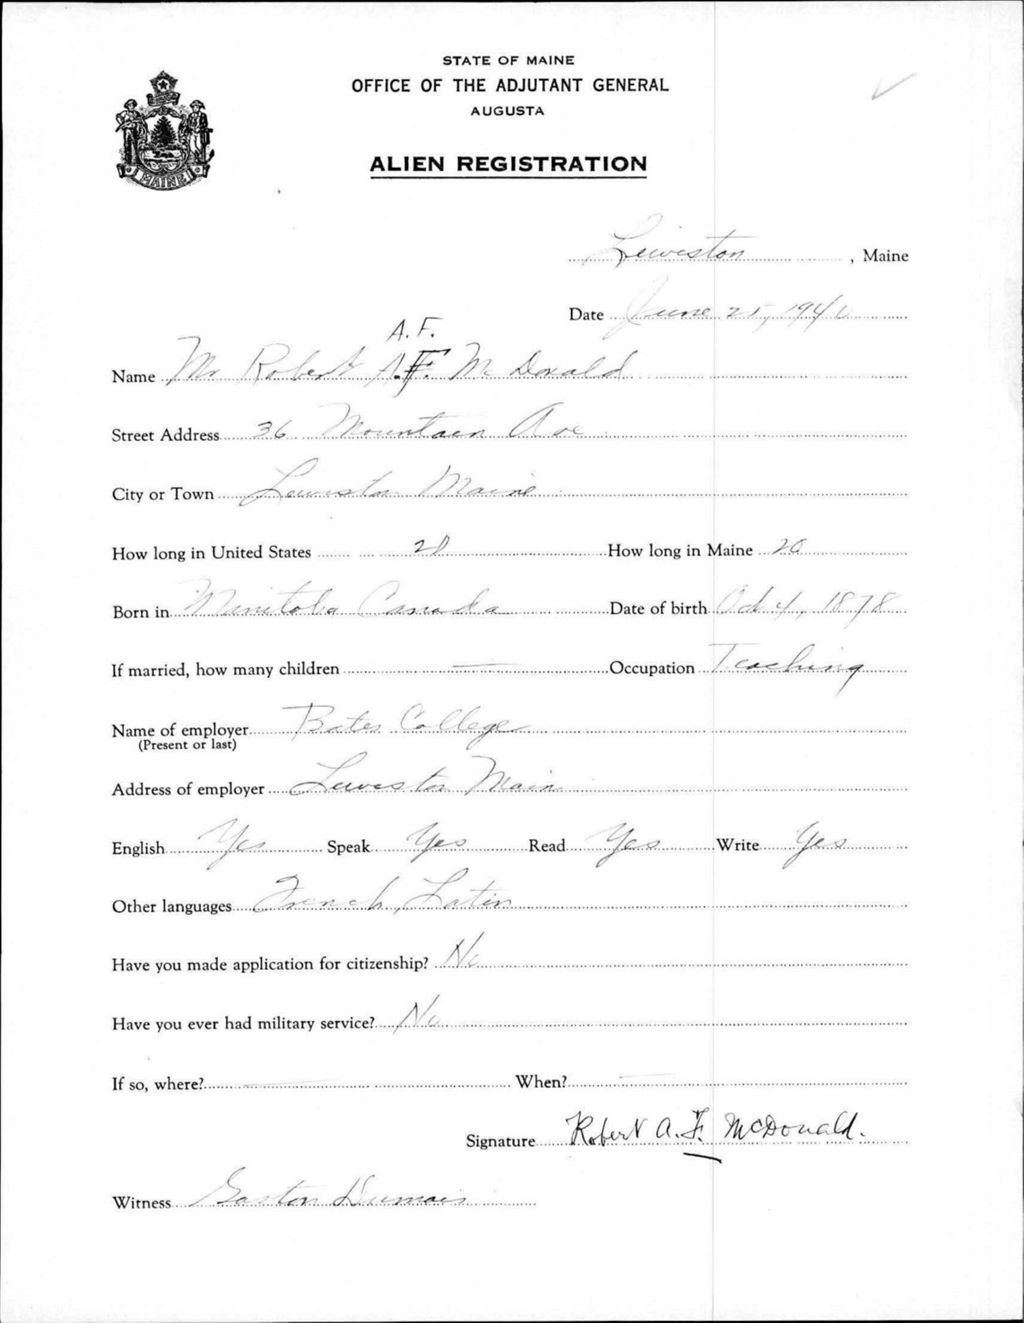 STATE OF MAINE
OFFICE OF THE ADJUTANT GENERAL
AUGUSTA
ALIEN REGISTRATION
MAINE
Lewiston, Maine
Date June 25, 1940
A. F.
Name Mr Robert A.F. McDonald
Street Address 36 Mountain Ave
City or Town Lewiston Maine
How long in United States 20 How long in Maine 20
Born in Manitoba Canada Date of birth Oct 4, 1878
If married, how many children — Occupation Teaching
Name of employer Bates College
(Present or last)
Address of employer Lewiston Maine
English Yes Speak Yes Read Yes Write Yes
Other languages French, Latin
Have you made application for citizenship? No
Have you ever had military service? No
If so, where? — When? —
Signature Robert A. F. McDonald.
Witness Gaston Dumais